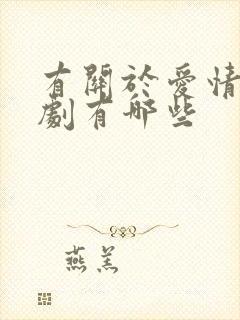 有關於愛情
劇有哪些
燕羔